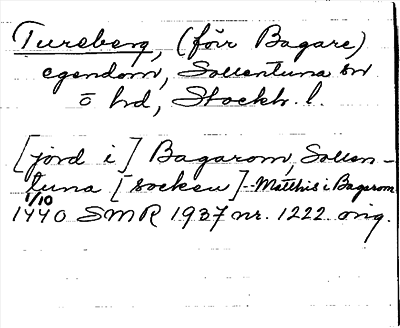 Tureberg, (förr Bagare)
egendom, Sollentuna sn
o hd, Stockh. l.
[jord i] Bagarom, Sollen-
tuna [socken] - Matthis i Bagarom
1/10
1440 SMR 1937 nr. 1222 orig.